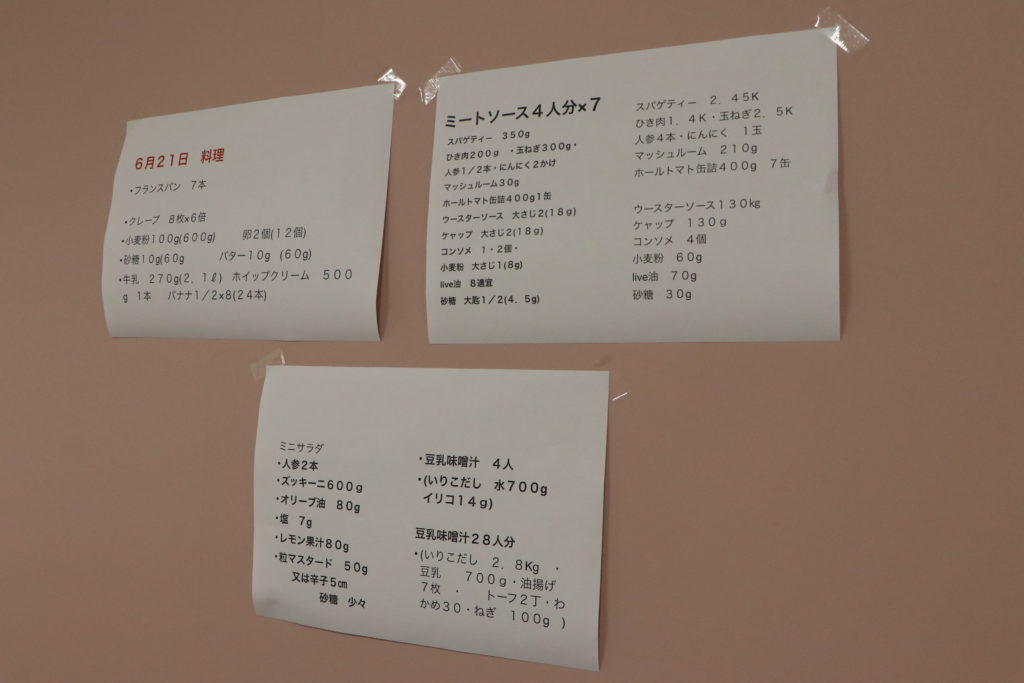 6月21日　料理
・フランスパン　7本
・クレープ　8枚×6倍
・小麦粉100g(600g)　　卵2個(12個)
・砂糖10g(60g　　　バター10g　(60g)
・牛乳　270g(2.1ℓ)　ホイップクリーム　500
g　1本　バナナ1/2×8(24本)
ミートソース4人分×7
スパゲティー　350g
ひき肉200g　・玉ねぎ300g・
人参1/2本・にんにく2かけ
マッシュルーム30g
ホールトマト缶詰400g1缶
ウースターソース　大さじ2(18g)
ケャップ　大さじ2(18g)
コンソメ　1・2個・
小麦粉　大さじ1(8g)
live油　8適宜
砂糖　大匙1/2(4.5g)
スパゲティー　2.45K
ひき肉1.4K・玉ねぎ2.5K
人参4本・にんにく　1玉
マッシュルーム　210g
ホールトマト缶詰400g　7缶
ウースターソース130㎏
ケャップ　130g
コンソメ　4個
小麦粉　60g
live油　70g
砂糖　30g
ミニサラダ
・人参2本
・ズッキーニ600g
・オリーブ油　80g
・塩　7g
・レモン果汁80g
・粒マスタード　50g
又は辛子5㎝
砂糖　少々
・豆乳味噌汁　4人
・(いりこだし　水700g
イリコ14g)
豆乳味噌汁28人分
・(いりこだし　2.8Kg　・
豆乳　　700g・油揚げ
7枚　・　　トーフ2丁・わ
かめ30・ねぎ　100g　)